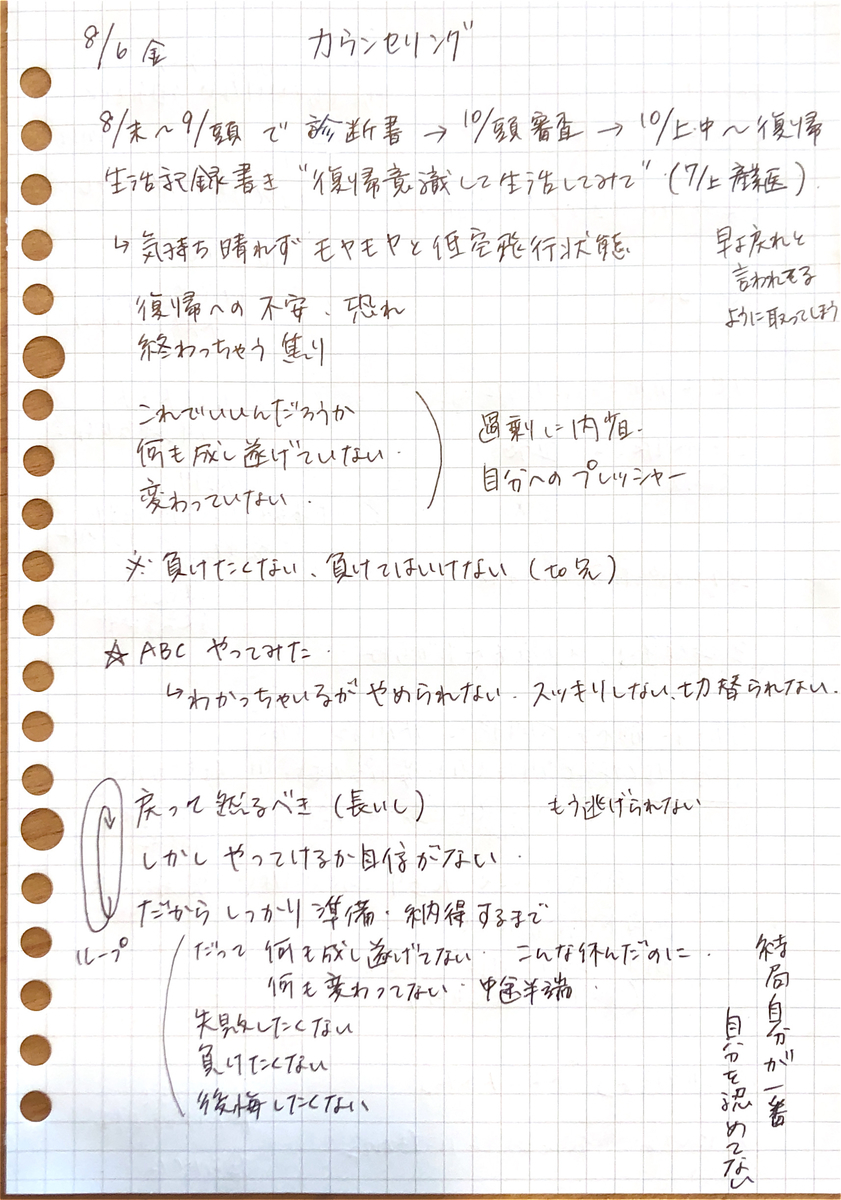 8/6 金
カウンセリング
8/末〜9/頭 で 診断書 → 10/頭審査 → 10/上中〜復帰
生活記録書き "復帰意識して生活してみて" (7/上産業医)
↳ 気持ち晴れず モヤモヤと低空飛行状態
早よ戻れと
言われてる
ように取ってしまう
復帰への不安、恐れ
終わっちゃう焦り
これでいいんだろうか
何も成し遂げていない.
変わっていない.
過剰に内省.
自分へのプレッシャー
※ 負けたくない、負けてはいけない (to 兄)
☆ ABC やってみた.
↳ わかっちゃいるが やめられない. スッキリしない、切替られない.
戻って然るべき (長いし)
もう逃げられない
しかし やってけるか自信がない.
だから しっかり 準備・納得するまで
ループ
だって 何も成し遂げてない. こんな休んだのに.
何も変わってない. 中途半端.
失敗したくない
負けたくない
後悔したくない
結局自分が一番
自分を認めてない